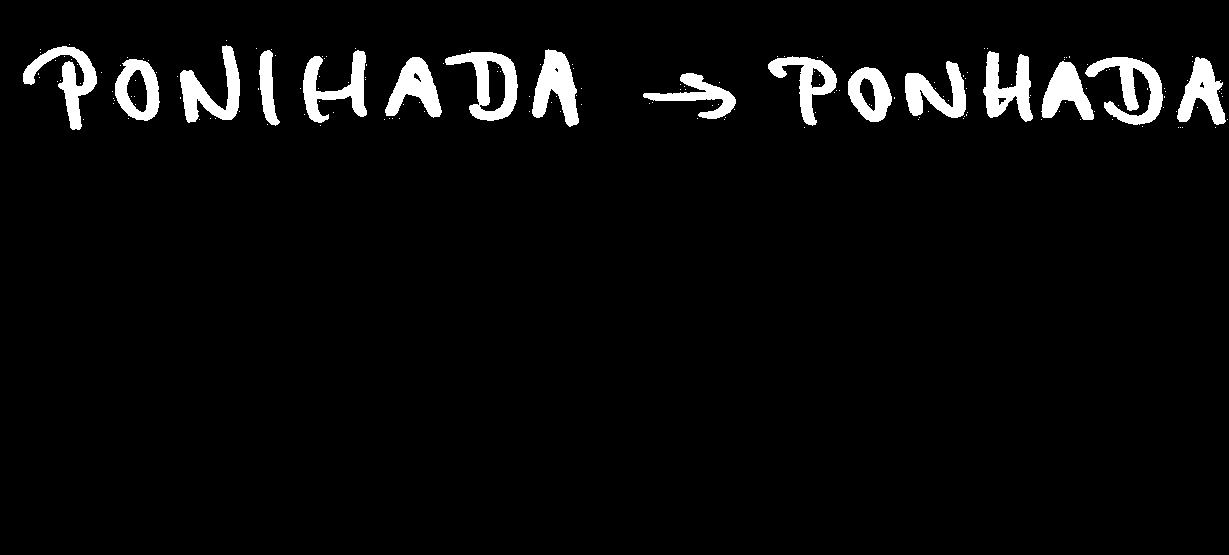 PONIHADA → PONHADA